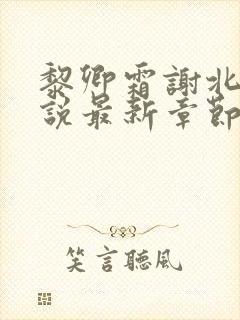 黎卿霜謝北
說最新章節
笑言聽風